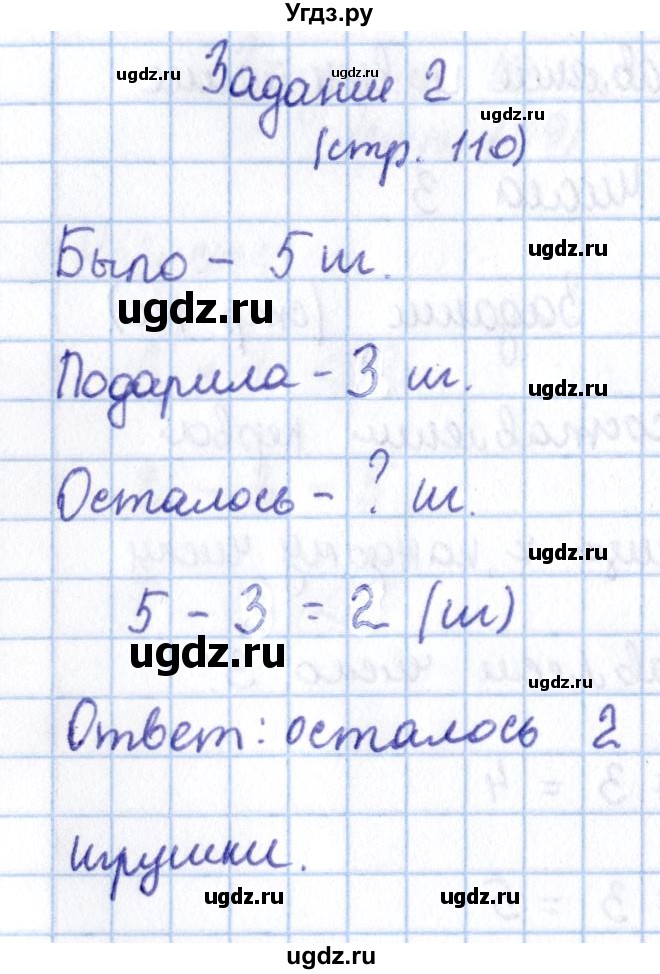 Угдз.ру
Задание 2
ugdz.ru
ugdz.ru
ugdz.ru
(стр. 110)
Было – 5 ш.
ugdz.ru
ugdz.ru
Подарила – 3 ш.
ugdz.ru
Осталось – ? ш.
ugdz.ru
5 – 3 = 2 (ш)
ugdz.ru
ugdz.ru
Ответ: осталось 2
игрушки.
ugdz.ru
ugdz.ru
ugdz.ru